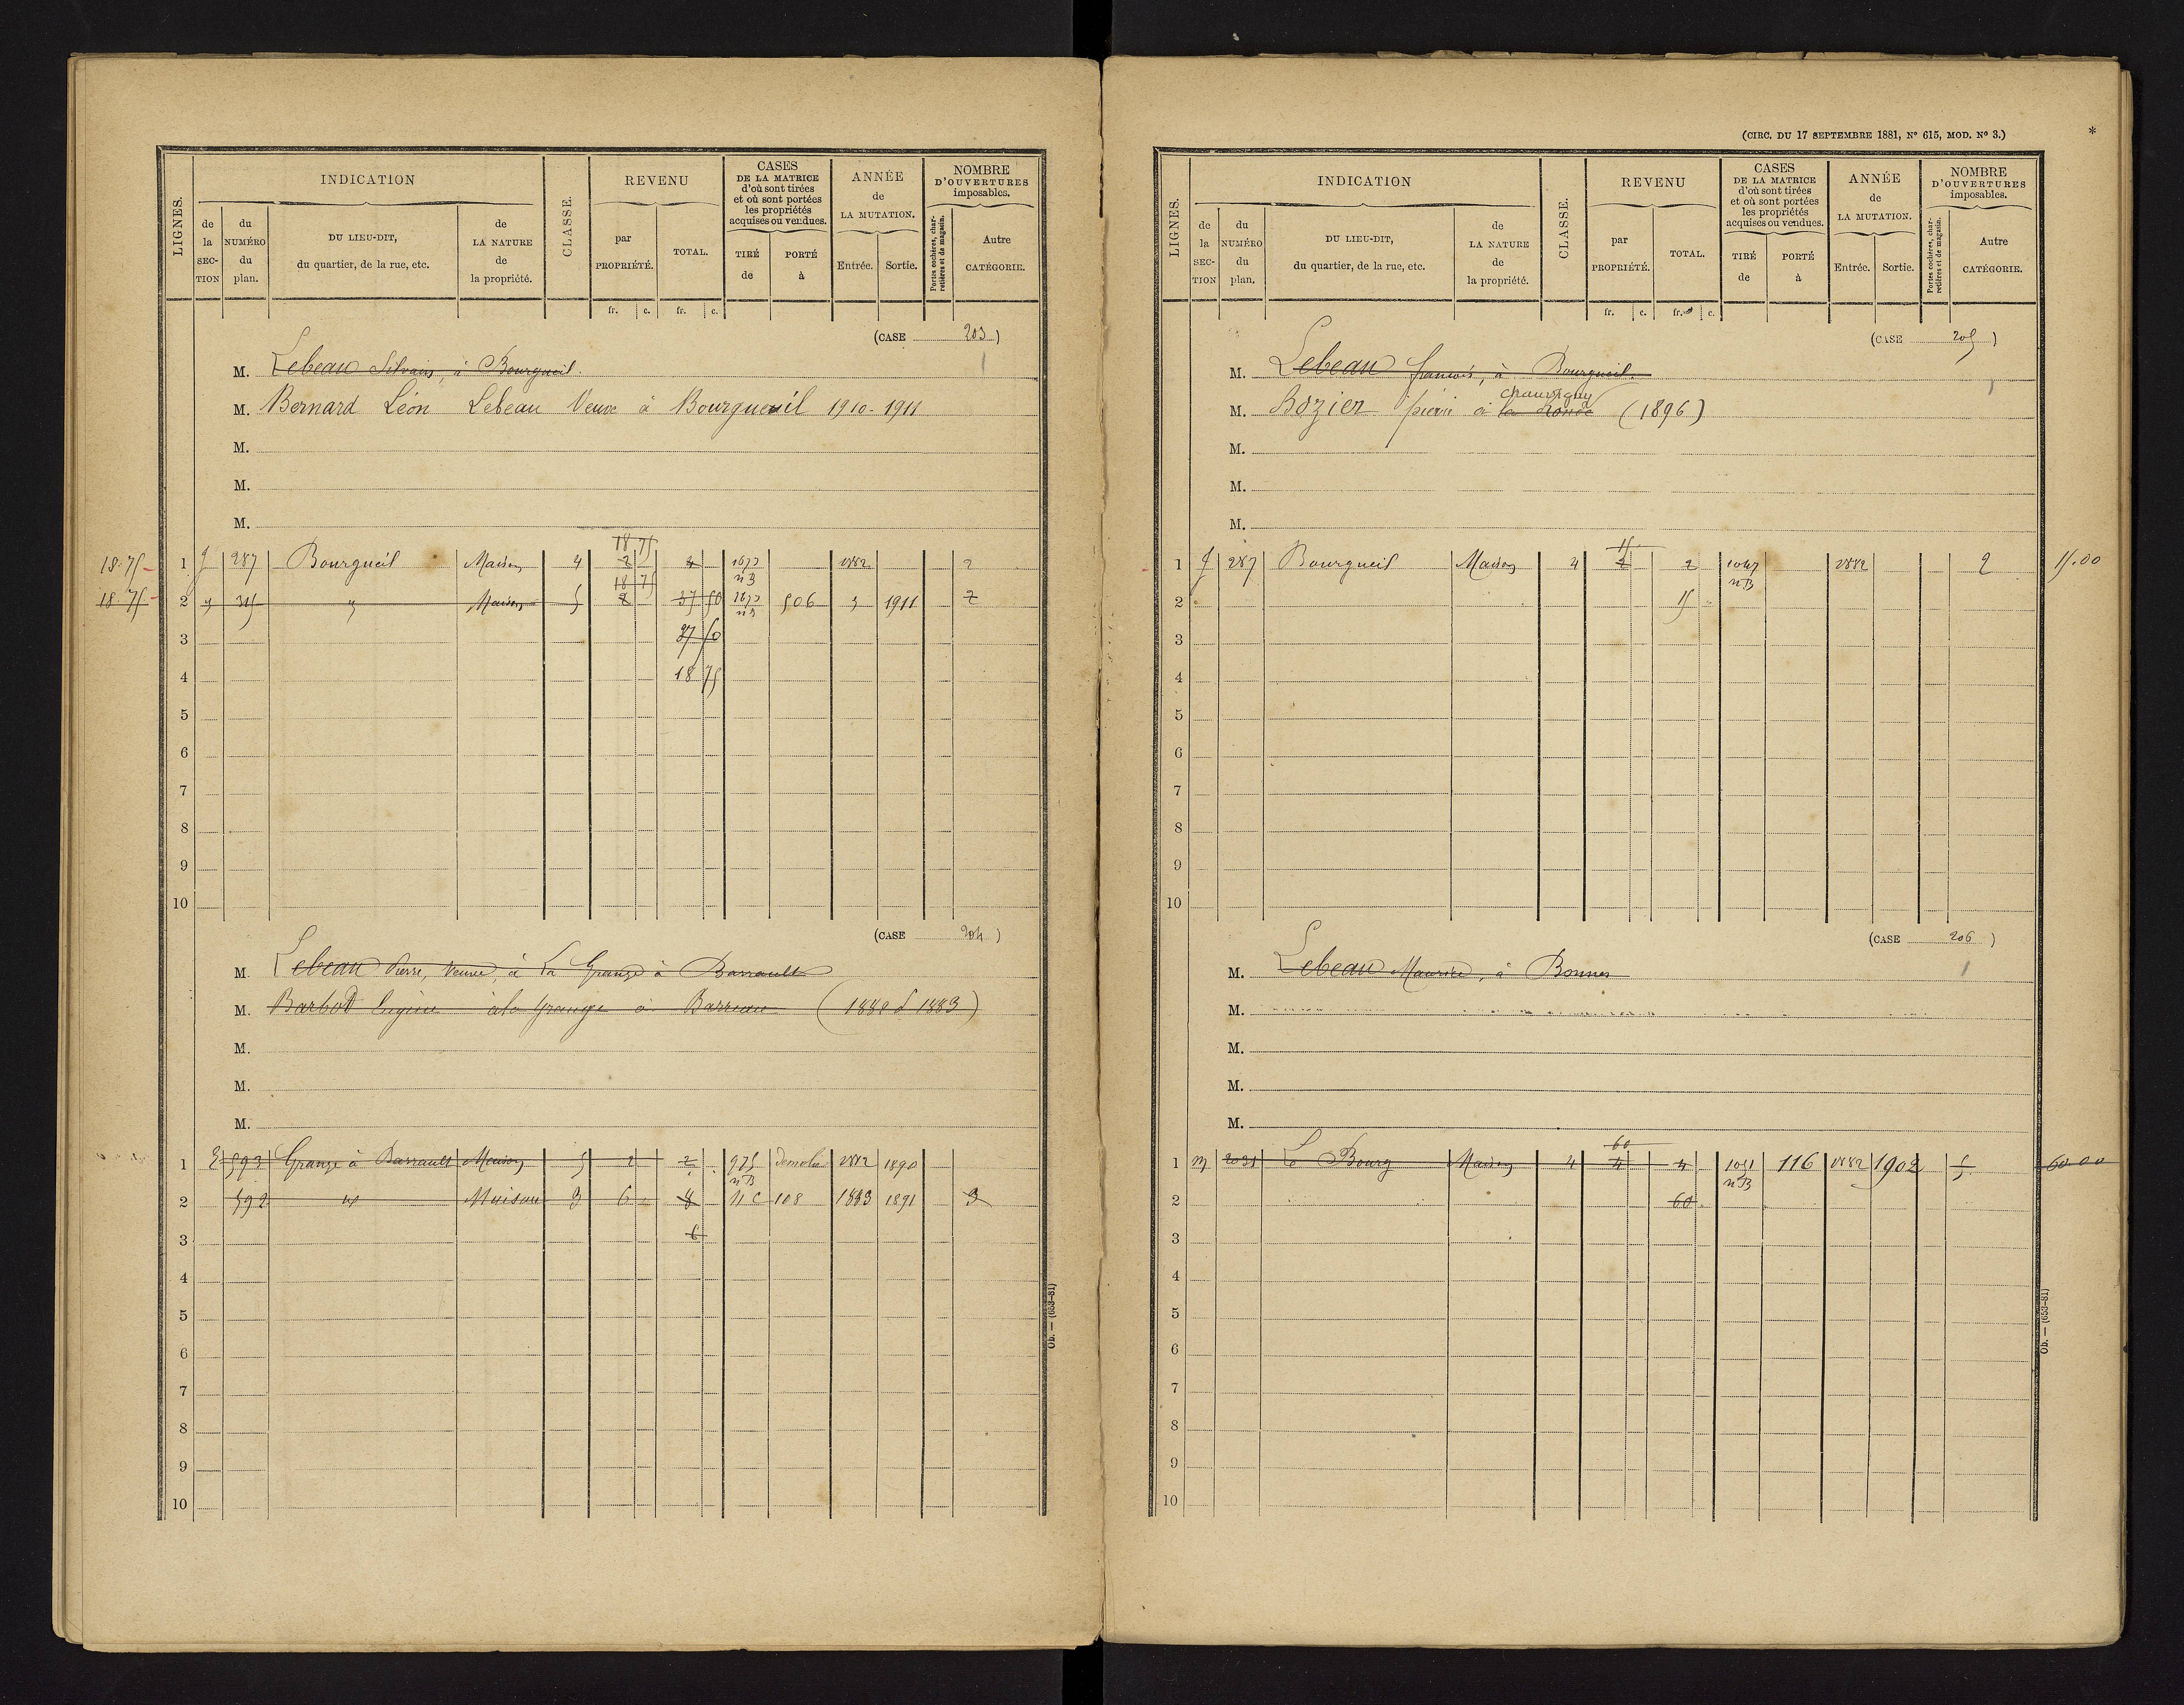 LIGNES.
INDICATION
de la SECTION
du NUMÉRO du plan.
DU LIEU-DIT, du quartier, de la rue, etc.
de LA NATURE de la propriété.
CLASSE.
REVENU
par PROPRIÉTÉ.
TOTAL.
fr. c. fr. c.
CASES DE LA MATRICE d'où sont tirées et où sont portées les propriétés acquises ou vendues.
TIRÉ de
PORTÉ à
ANNÉE de LA MUTATION.
Entrée. Sortie.
NOMBRE D'OUVERTURES imposables.
Portes cochères, charretières et de magasin.
Autre CATÉGORIE.
(CASE 203)
M. Lebeau Silvain, à Bourgueil.
M. Bernard Léon Lebeau Veuve à Bourgueuil 1910-1911
M.
M.
M.
18 75
18.75 1 J 287 Bourgueil Maison 4 2 4 1673 nB 1882 2
18 75
18.75 2 " 315 " Maison 5 2 37 50 1673 nB 506 " 1911 2
3 37 50
4 18 75
5
6
7
8
9
10
(CASE 204)
M. Lebeau Pierre, Veuve, à La Grange à Barrault
M. Barbot Eugène à la Grange à Barreau (1880 d 1883)
M.
M.
M.
1 E 593 Grange à Barrault Maison 5 2 2 975 nB demolie 1882 1890
2 592 id Maison 3 6 8 11 C 108 1883 1891 3
3 6
4
5
6
7
8
9
10
Ob. — (653-81)
(CIRC. DU 17 SEPTEMBRE 1881, Nº 615, MOD. Nº 3.) *
LIGNES.
INDICATION
de la SECTION
du NUMÉRO du plan.
DU LIEU-DIT, du quartier, de la rue, etc.
de LA NATURE de la propriété.
CLASSE.
REVENU
par PROPRIÉTÉ.
TOTAL.
fr. c. fr. c.
CASES DE LA MATRICE d'où sont tirées et où sont portées les propriétés acquises ou vendues.
TIRÉ de
PORTÉ à
ANNÉE de LA MUTATION.
Entrée. Sortie.
NOMBRE D'OUVERTURES imposables.
Portes cochères, charretières et de magasin.
Autre CATÉGORIE.
(CASE 205)
M. Lebeau francois, à Bourgueil.
chauvigny
M. Bozier pierre à la Ronde (1896)
M.
M.
M.
15
1 J 287 Bourgueil Maison 4 2 2 1047 nB 1882 2 15.00
2 15
3
4
5
6
7
8
9
10
(CASE 206)
M. Lebeau Maurice, à Bonnes
M.
M.
M.
M.
60
1 M 2031 Le Bourg Maison 4 4 4 1051 nB 116 1882 1902 5 60.00
2 60
3
4
5
6
7
8
9
10
Ob. — (653-81)